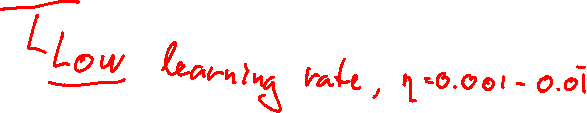 Low learning rate, η=0.001-0.01